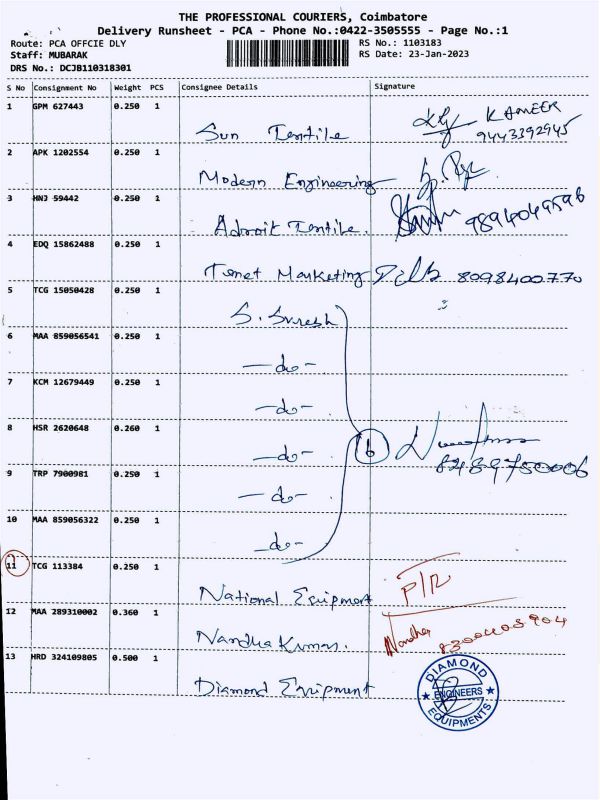 THE PROFESSIONAL COURIERS, Coimbatore
Delivery Runsheet - PCA - Phone No.:0422-3505555 - Page No.:1
Route: PCA OFFCIE DLY RS No.: 1103183
Staff: MUBARAK RS Date: 23-Jan-2023
DRS No.: DCJB110318301
S No Consignment No Weight PCS Consignee Details Signature
1 GPM 627443 0.250 1
Sun Textile KAMEER
9443392945
2 APK 1202554 0.250 1
Modern Engineering
3 HNJ 59442 0.250 1
Adroit Textile. 9894049596
4 EDQ 15862488 0.250 1
Marketing 8098400770
5 TCG 15050428 0.250 1
S. Suresh
6 MAA 859056541 0.250 1
-do-
7 KCM 12679449 0.250 1
-do-
8 HSR 2620648 0.260 1
-do- 6
8489750006
9 TRP 7900981 0.250 1
-do-
10 MAA 859056322 0.250 1
-do-
11 TCG 113384 0.250 1
National Equipment P/R
12 MAA 289310002 0.360 1
Nandha Kumar. Nandha
13 HRD 324109805 0.500 1
Diamond Equipment
DIAMOND
ENGINEERS
EQUIPMENTS